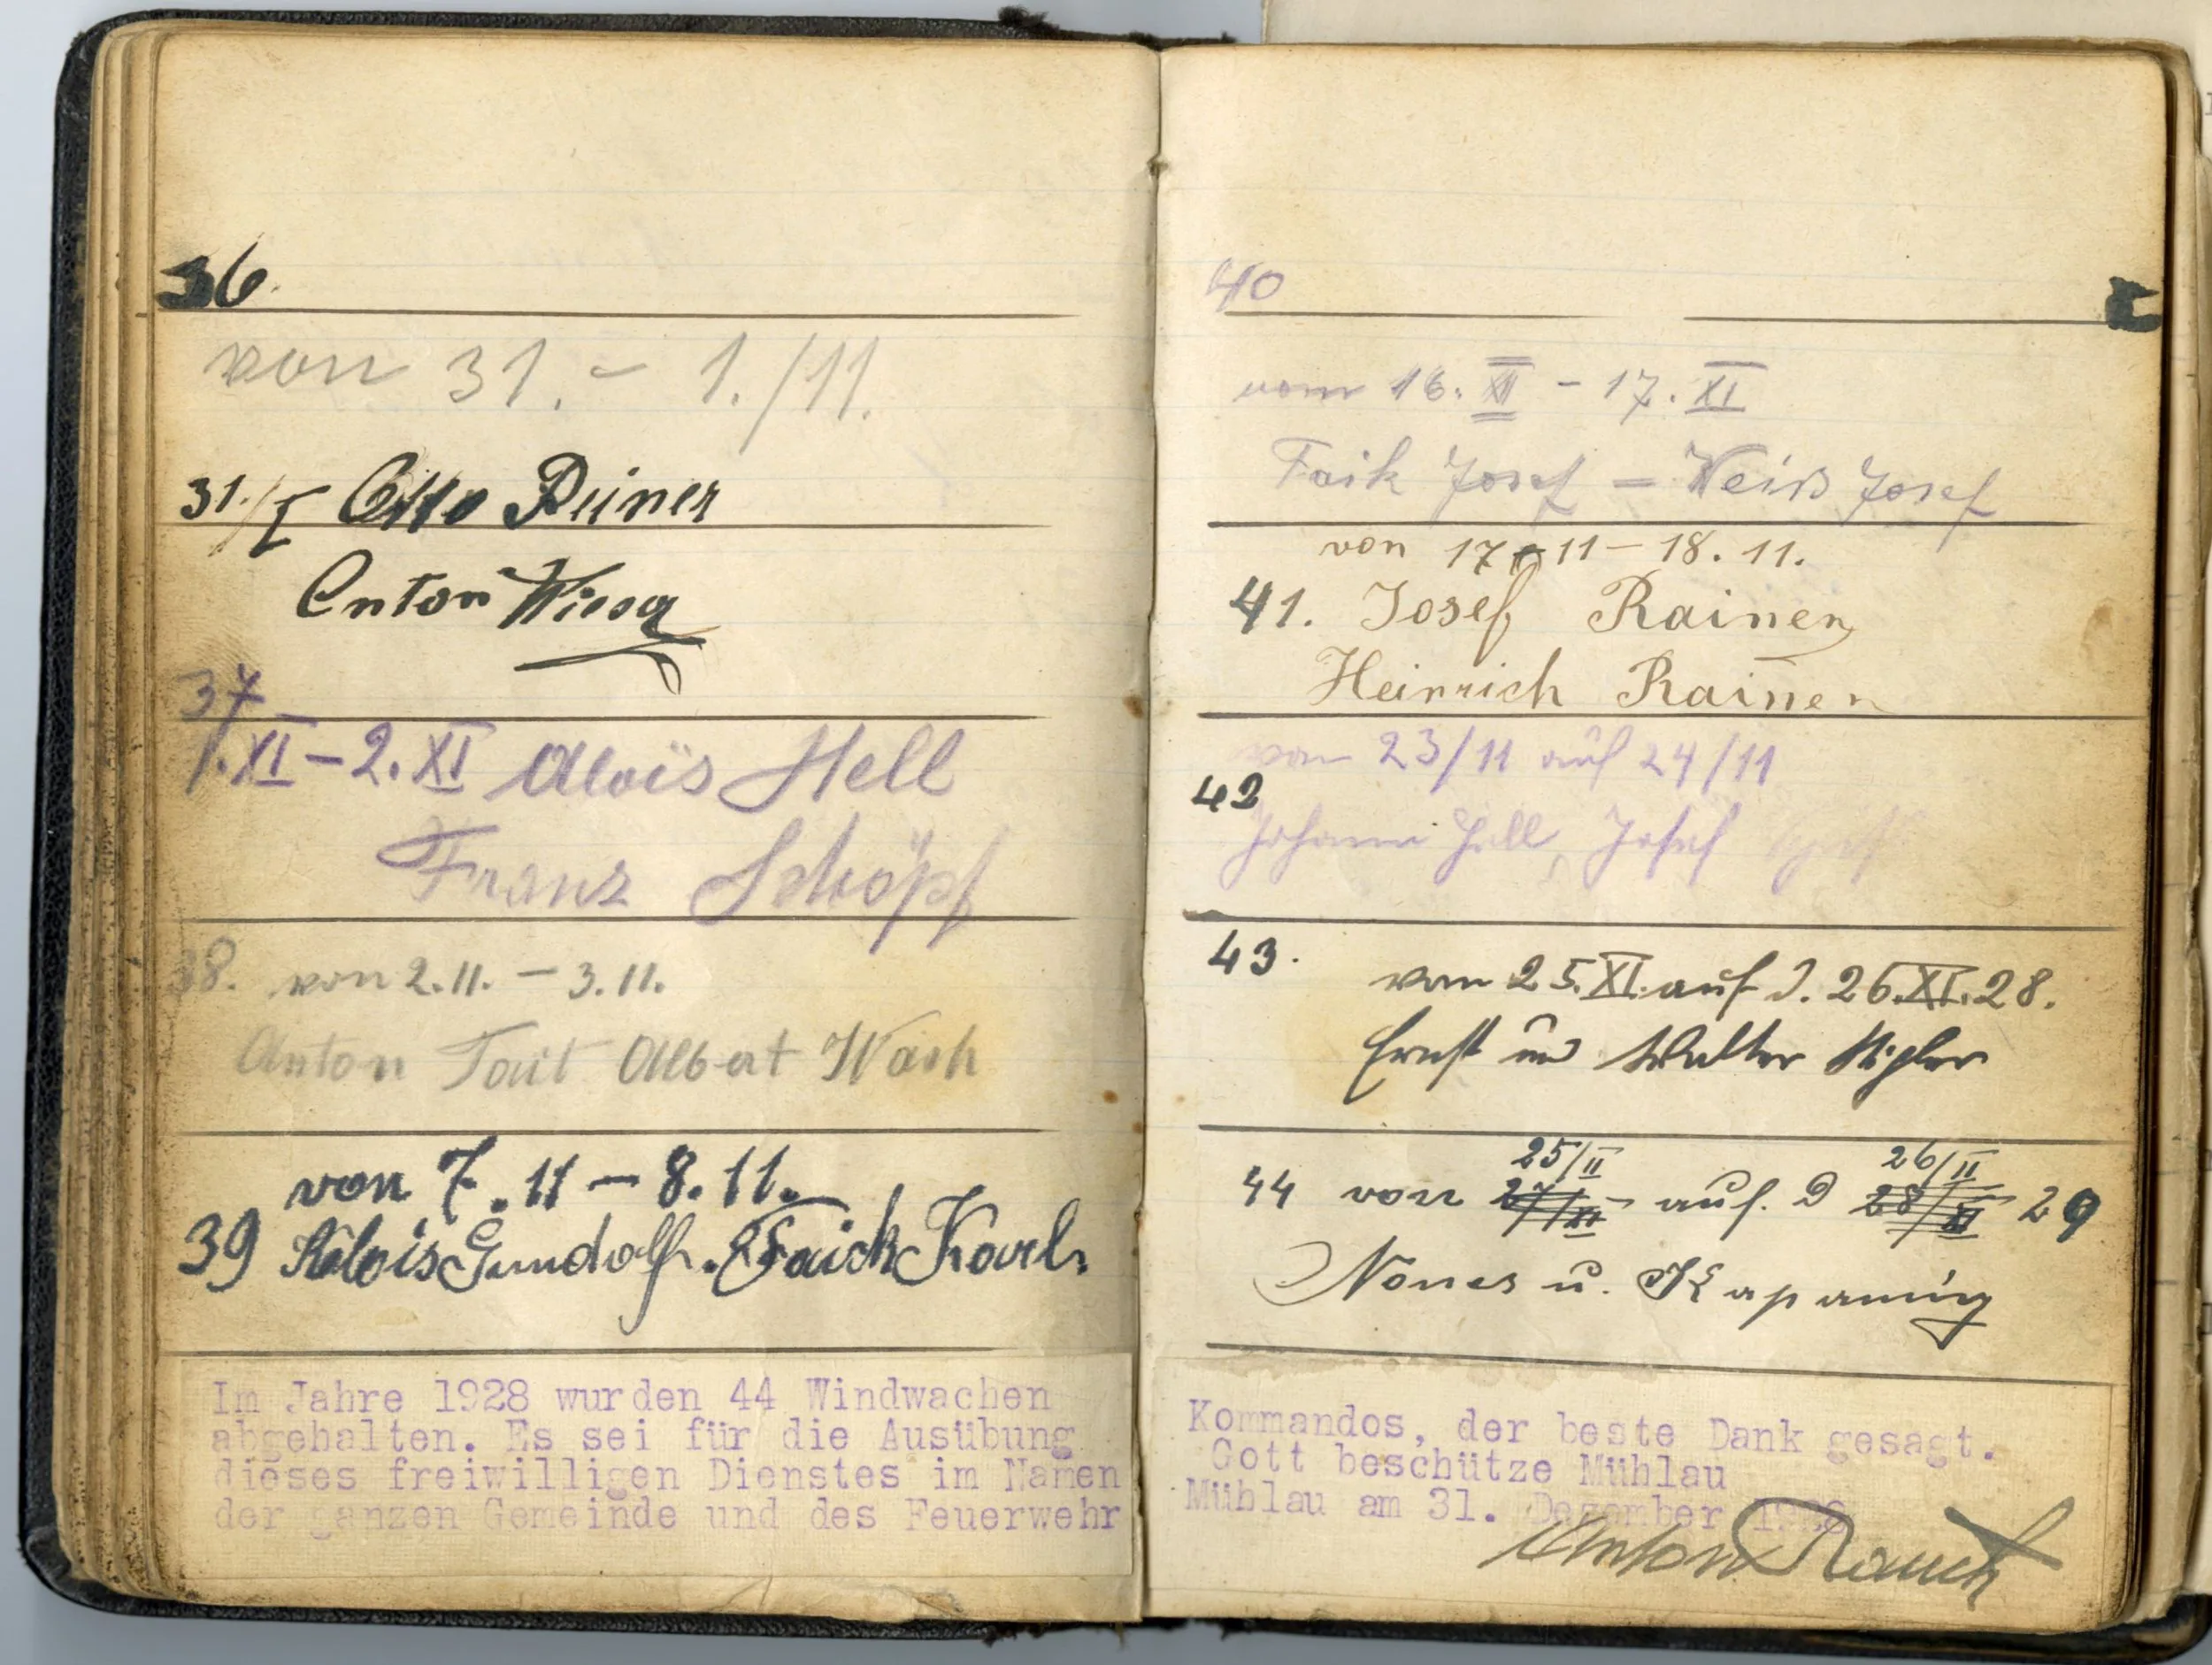 36.
von 31. - 1./11.
31./I Otto Reiner
Anton
37
1.XI - 2.XI Alois Hell
Franz Schöpf
38. von 2.11. - 3.11.
Anton Tait Albert
von 7.11 - 8.11.
39 Alois Gundolf. Faick Karl.
Im Jahre 1928 wurden 44 Windwachen
abgehalten. Es sei für die Ausübung
dieses freiwilligen Dienstes im Namen
der ganzen Gemeinde und des Feuerwehr
40
vom 16. XI - 17. XI
Faik Josef = Weiß Josef
von 17.11 - 18.11.
41. Josef Rainer
Heinrich Rainer
von 23/11 auf 24/11
42
Johann Hell, Josef
43.
vom 25.XI. auf d. 26.XI.28.
Ernst und Walter
25/II 26/II
44 von 27/XI - auf. d 28/XI 29
Nones u. Kapaning
Kommandos, der beste Dank gesagt.
Gott beschütze Mühlau
Mühlau am 31. Dezember 1928
Anton Rauch